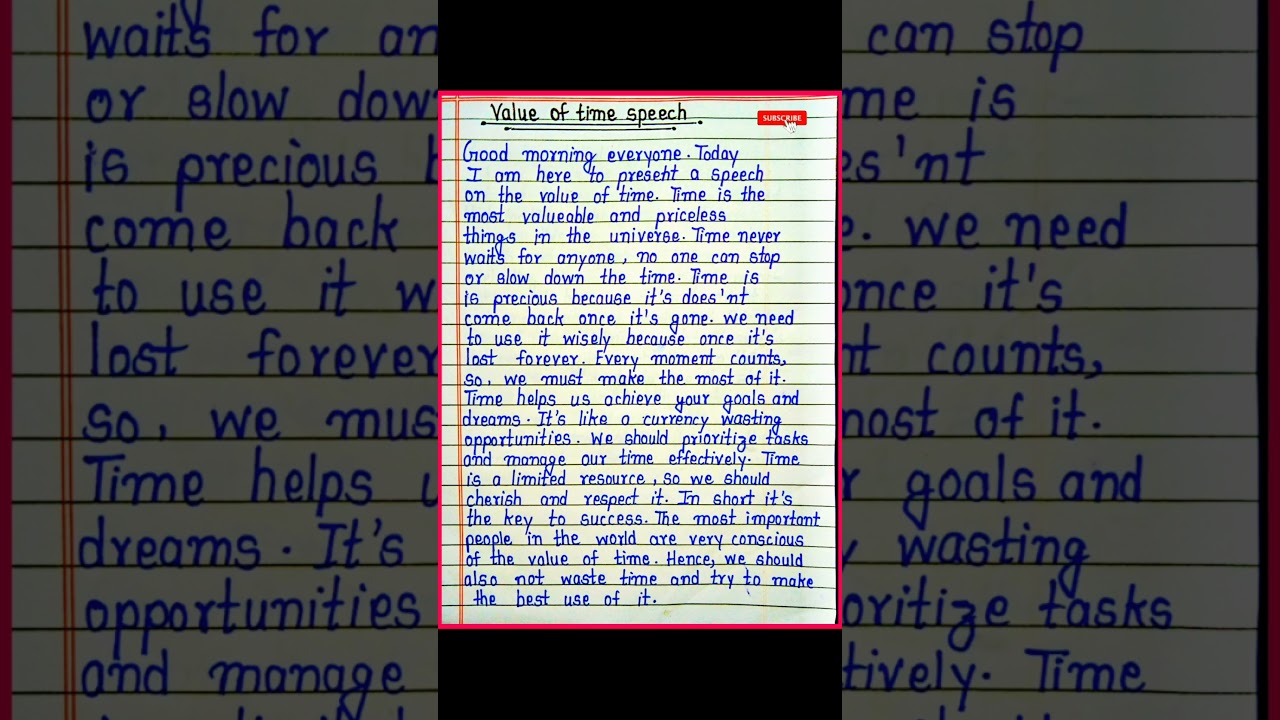 Value of time speech
SUBSCRIBE
Good morning everyone. Today
I am here to present a speech
on the value of time. Time is the
most valueable and priceless
things in the universe. Time never
waits for anyone, no one can stop
or slow down the time. Time is
is precious because it's does'nt
come back once it's gone. we need
to use it wisely because once it's
lost forever. Every moment counts,
so, we must make the most of it.
Time helps us achieve your goals and
dreams. It's like a currency wasting
opportunities. We should prioritize tasks
and manage our time effectively. Time
is a limited resource, so we should
cherish and respect it. In short it's
the key to success. The most important
people in the world are very conscious
of the value of time. Hence, we should
also not waste time and try to make
the best use of it.